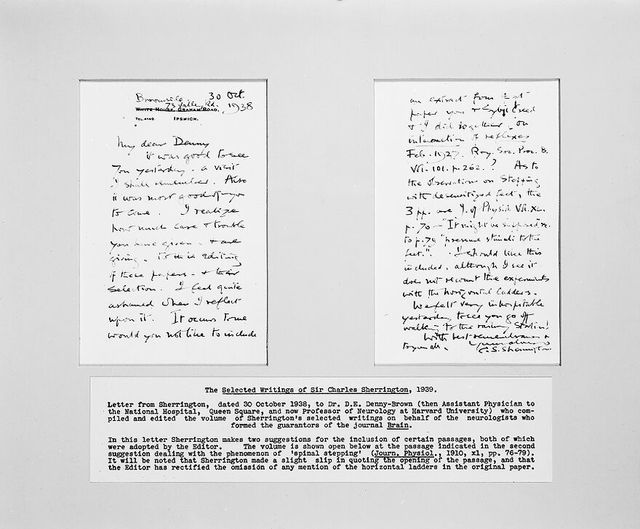 30 Oct.
1938
WHITE HOUSE, GRAHAM ROAD,
IPSWICH.
My dear Denny
it was good to see
you yesterday – a visit
I shall remember. Also
it was most good of you
to come. I realize
how much care & trouble
you have given – & are
giving – to this editing
of these papers – & their
selection. I feel quite
ashamed when I reflect
upon it. It occurs to me
would you not like to include
an extract from that
paper you & Liddell
& I did together on
interaction of reflexes
Feb. 1927. Roy. Soc. Proc. B.
Vol. 101. p. 262. ? As to
the observation on Stepping
with desensitized feet, the
3 pp. are J. of Physiol. Vol. XL.
p. 76 – "It might be supposed"
to p. 79 "stands to the
feet." I should like this
included, although I see it
does not recount the experiments
with the horizontal ladders.
We felt very inhospitable
yesterday to see you go off
walking to the railway station!
With best remembrances
C.S. Sherrington
The Selected Writings of Sir Charles Sherrington, 1939.
Letter from Sherrington, dated 30 October 1938, to Dr. D.E. Denny-Brown (then Assistant Physician to
the National Hospital, Queen Square, and now Professor of Neurology at Harvard University) who com-
piled and edited the volume of Sherrington's selected writings on behalf of the neurologists who
formed the guarantors of the journal Brain.
In this letter Sherrington makes two suggestions for the inclusion of certain passages, both of which
were adopted by the Editor. The volume is shown open below at the passage indicated in the second
suggestion dealing with the phenomenon of 'spinal stepping' (Journ. Physiol., 1910, xl, pp. 76-79).
It will be noted that Sherrington made a slight slip in quoting the opening of the passage, and that
the Editor has rectified the omission of any mention of the horizontal ladders in the original paper.